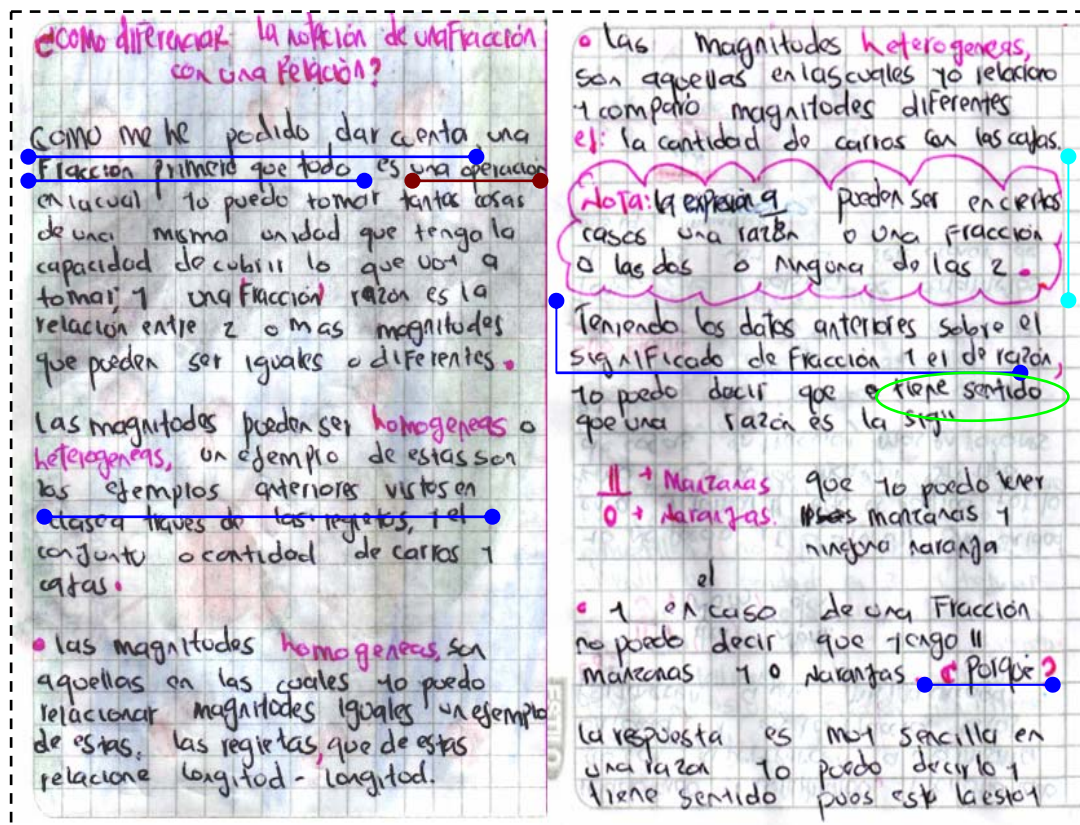 ¿como diferenciar la notación de una Fracción
con una Relación?
Como me he podido dar cuenta una
Fracción primero que todo es una operación
en la cual yo puedo tomar tantas cosas
de una misma unidad que tenga la
capacidad de cubrir lo que voy a
tomar, y una Fracción razón es la
relación entre 2 o mas magnitudes
que pueden ser iguales o diferentes.
Las magnitudes pueden ser homogeneas o
heterogeneas, un ejemplo de estas son
los ejemplos anteriores vistos en
clase a traves de las regletas, y el
conjunto o cantidad de carros y
cajas.
• las magnitudes homogeneas, son
aquellas en las cuales yo puedo
relacionar magnitudes iguales un ejemplo
de estas, las regletas, que de estas
relacione longitud - longitud.
• las magnitudes heterogeneas,
son aquellas en las cuales yo relaciono
y comparo magnitudes diferentes
ej: la cantidad de carros con las cajas.
Nota: la expresión 9/8 pueden ser en ciertos
casos una razón o una fracción
o las dos o ninguna de las 2.
Teniendo los datos anteriores sobre el
significado de Fracción y el de razón,
yo puedo decir que tiene sentido
que una razón es la sig"
11 → Manzanas que yo puedo tener
0 → Naranjas. manzanas y
ninguna naranja
el
• y en caso de una Fracción
no puedo decir que tengo 11
manzanas y 0 Naranjas. ¿Porqué?
la respuesta es muy sencilla en
una razon yo puedo decirlo y
tiene sentido pues este la estoy